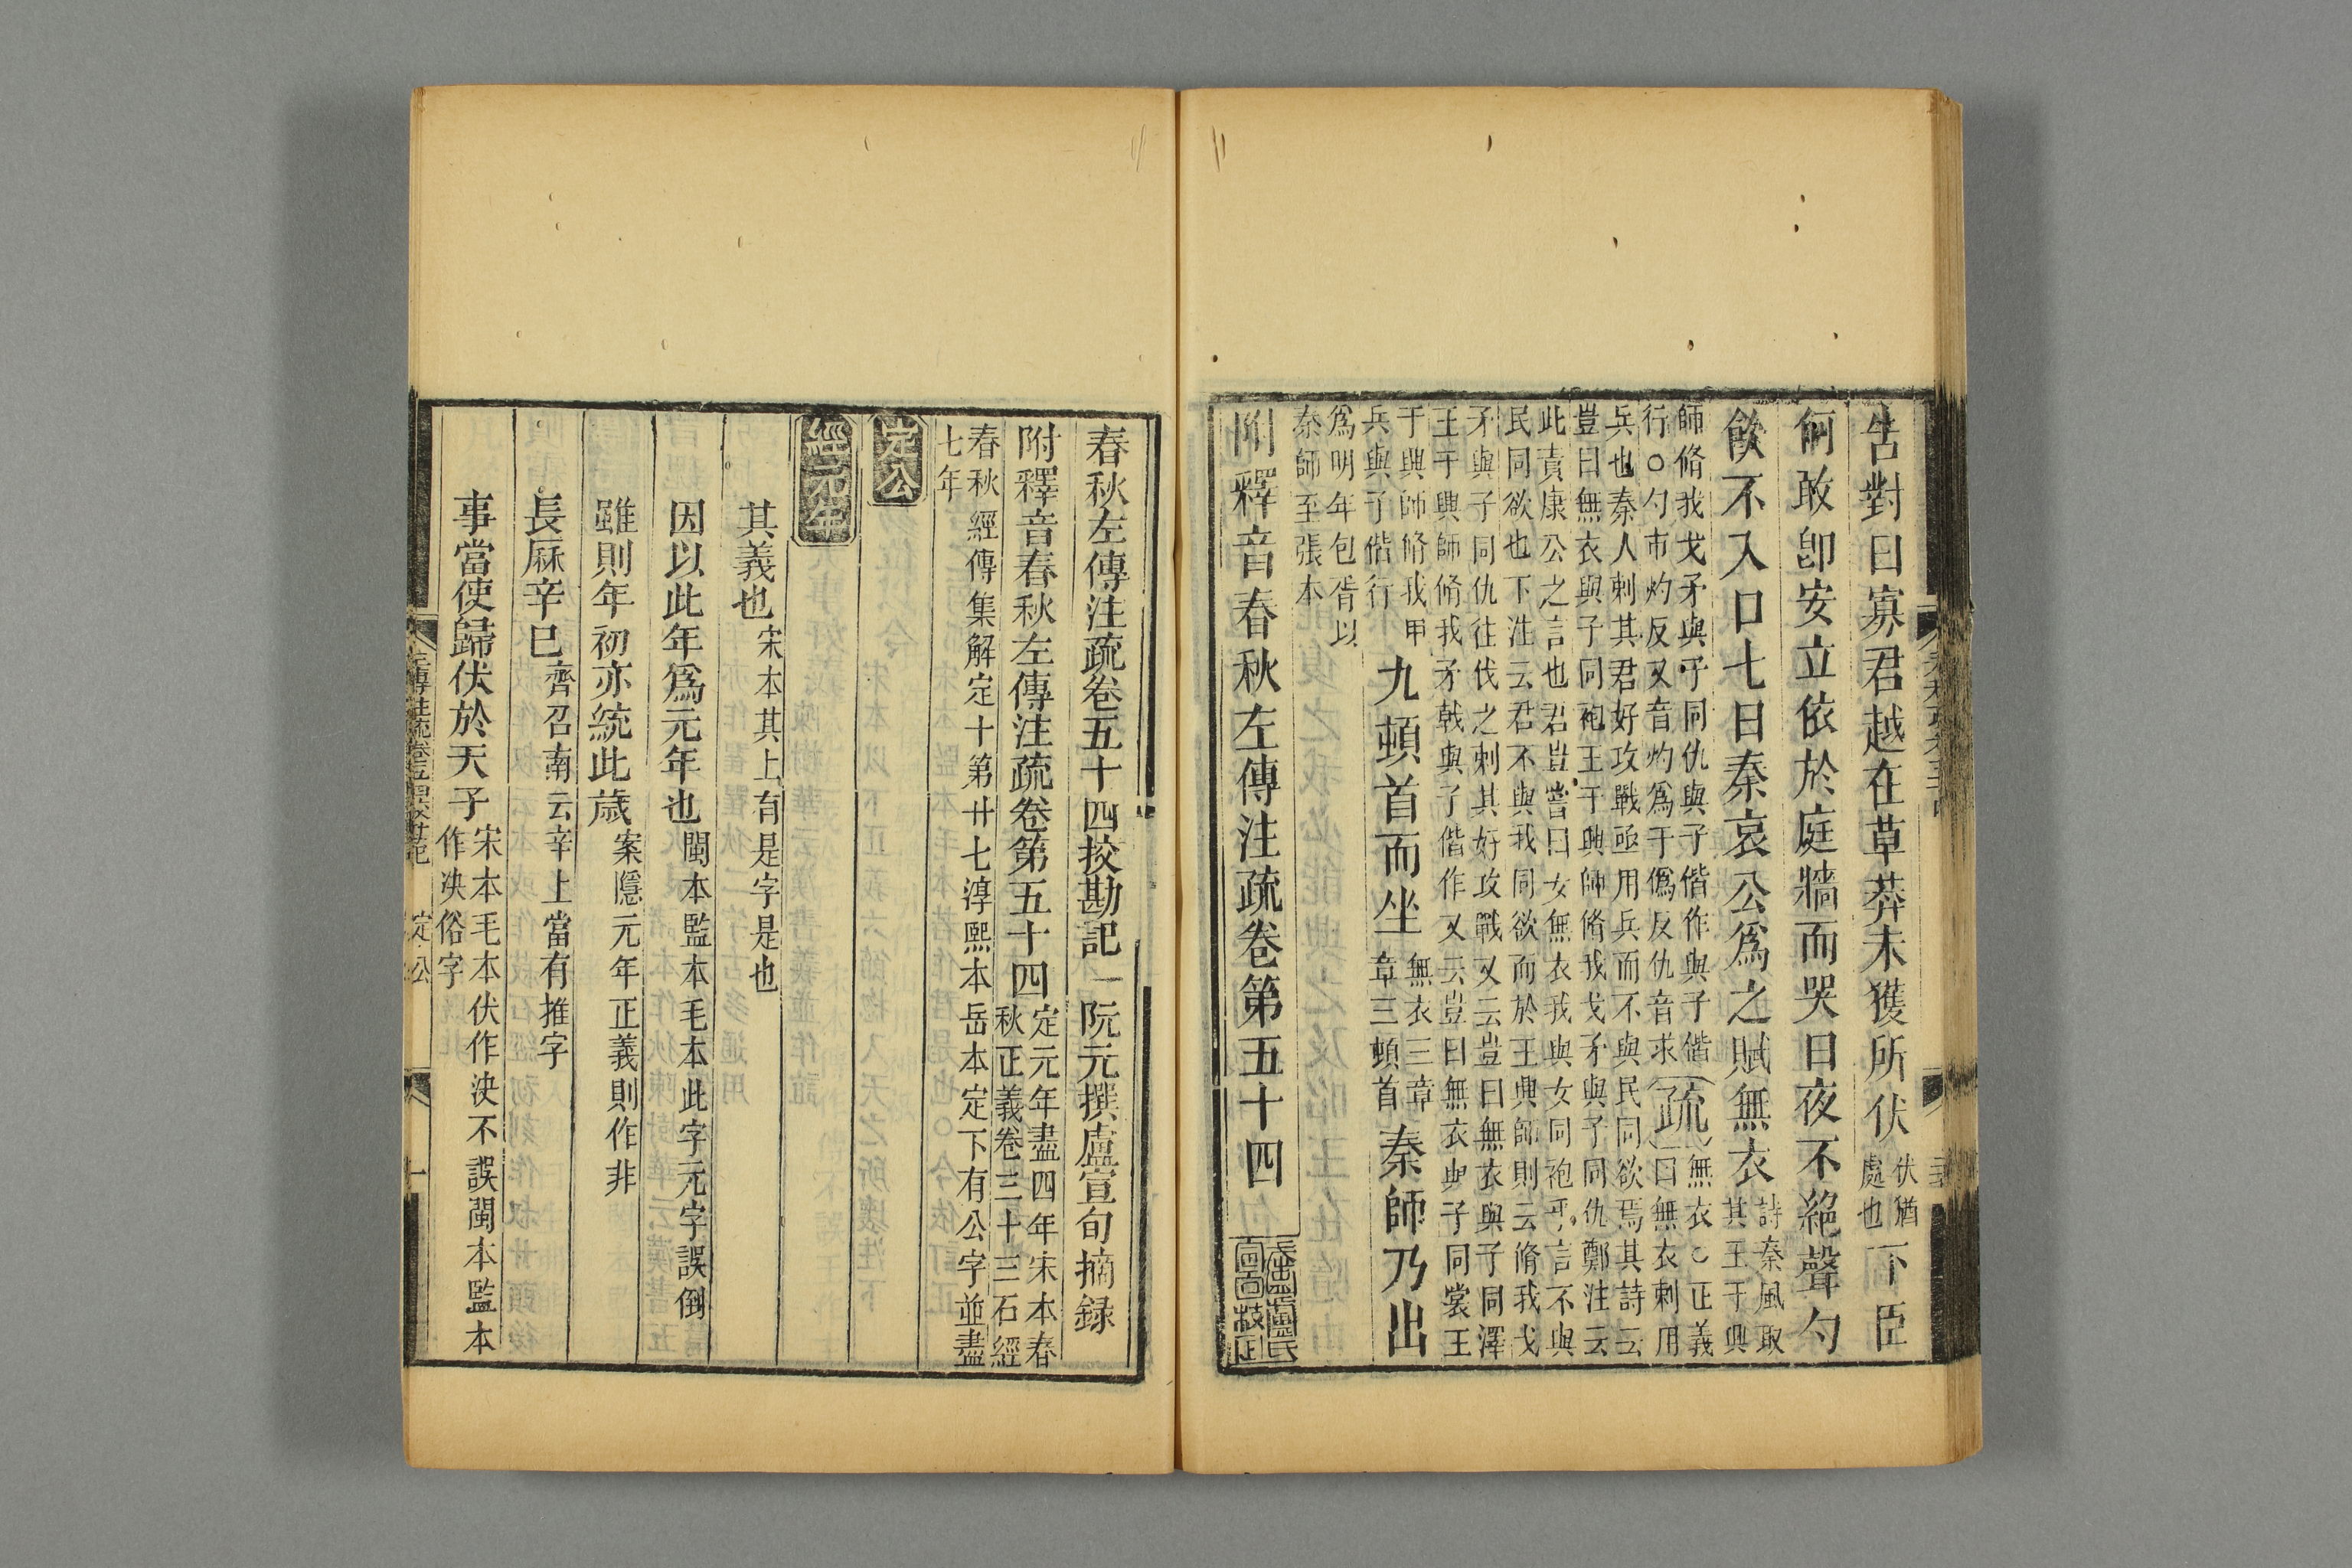 告對曰寡君越在草莽未獲所伏伏猶處也下臣
何敢卽安立依於庭牆而哭日夜不絕聲勺
飲不入口七日秦哀公爲之賦無衣詩秦風取其王于興
師脩我戈矛與子同仇與子偕作與子偕
行○勺市灼反又音灼爲于僞反仇音求疏無衣○正義曰無衣刺用
兵也秦人刺其君好攻戰亟用兵而不與民同欲焉其詩云
豈曰無衣與子同袍王于興師脩我戈矛與子同仇鄭注云
此責康公之言也君豈嘗曰女無衣我與女同袍乎言不與
民同欲也下注云君不與我同欲而於王興師則云脩我戈
矛與子同仇往伐之刺其好攻戰又云豈曰無衣與子同澤
王于興師脩我矛戟與子偕作又云豈曰無衣與子同裳王
于興師脩我甲
兵與子偕行九頓首而坐無衣三章章三頓首秦師乃出
爲明年包胥以
秦師至張本
附釋音春秋左傳注疏卷第五十四
春秋左傳注疏卷五十四挍勘記 阮元撰盧宣旬摘録
附釋音春秋左傳注疏卷第五十四定元年盡四年宋本春秋正義卷三十三石經
春秋經傳集解定十第廿七淳熙本岳本定下有公字並盡
七年
定公
經元年
其義也宋本其上有是字是也
因以此年爲元年也閩本監本毛本此字元字誤倒
雖則年初亦統此歲案隱元年正義則作非
長厤辛巳齊召南云辛上當有推字
事當使歸伏於天子宋本毛本伏作決不誤閩本監本作决俗字
定公